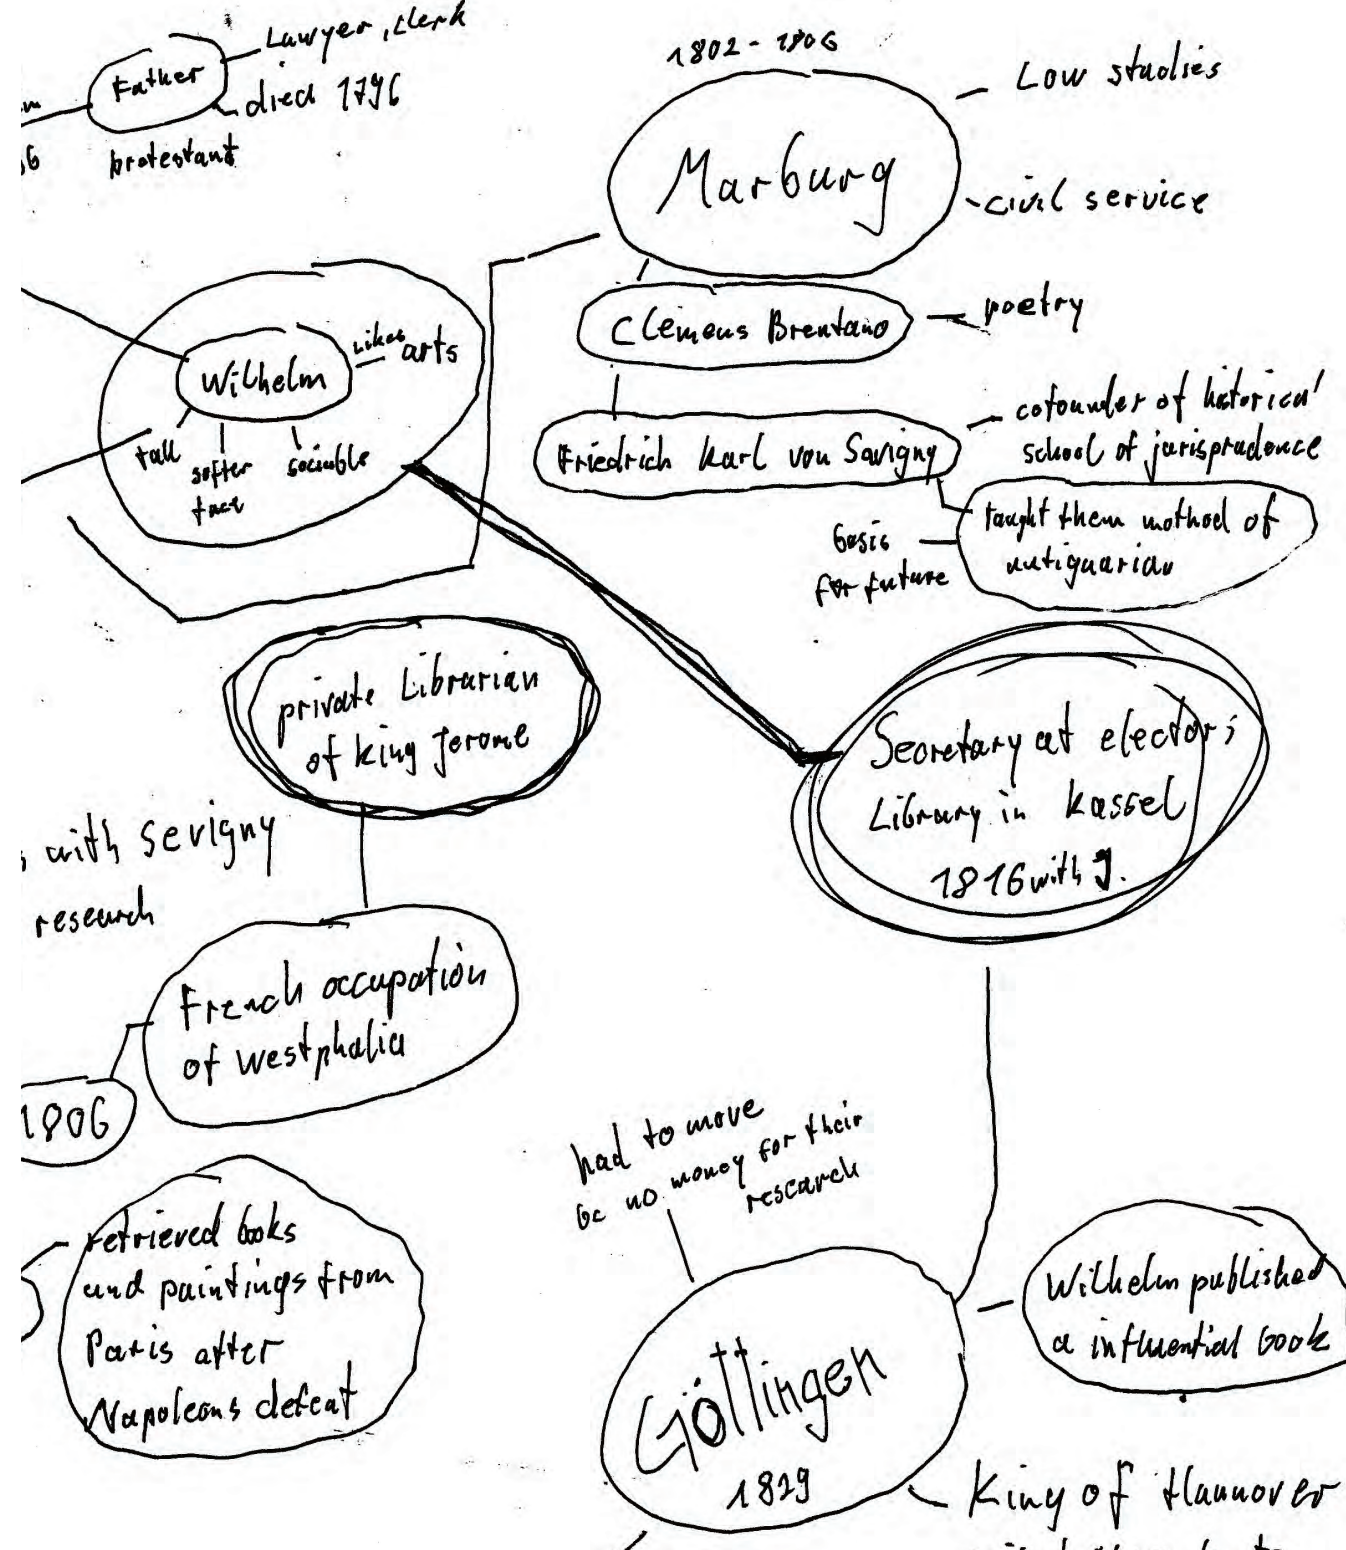 Lawyer, clerk
Father
died 1796
protestant
1802 - 1806
Marburg
Low studies
civil service
Clemens Brentano
poetry
Friedrich Karl von Savigny
cofounder of historical
school of jurisprudence
taught them method of
antiquarian
basis
for future
Wilhelm
likes arts
tall
softer
face
sociable
private Librarian
of king Jerome
Secretary at elector's
Library in Kassel
1816 with J.
with Sevigny
research
French occupation
of Westphalia
1806
retrieved books
and paintings from
Paris after
Napoleons defeat
had to move
bc no money for their
research
Göttingen
1829
Wilhelm published
a influential book
King of Hannover